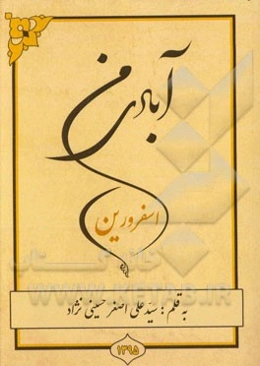 آبادی من
اسفرورین
به قلم : سید علی اصغر حسینی نژاد
۱۳۹۵